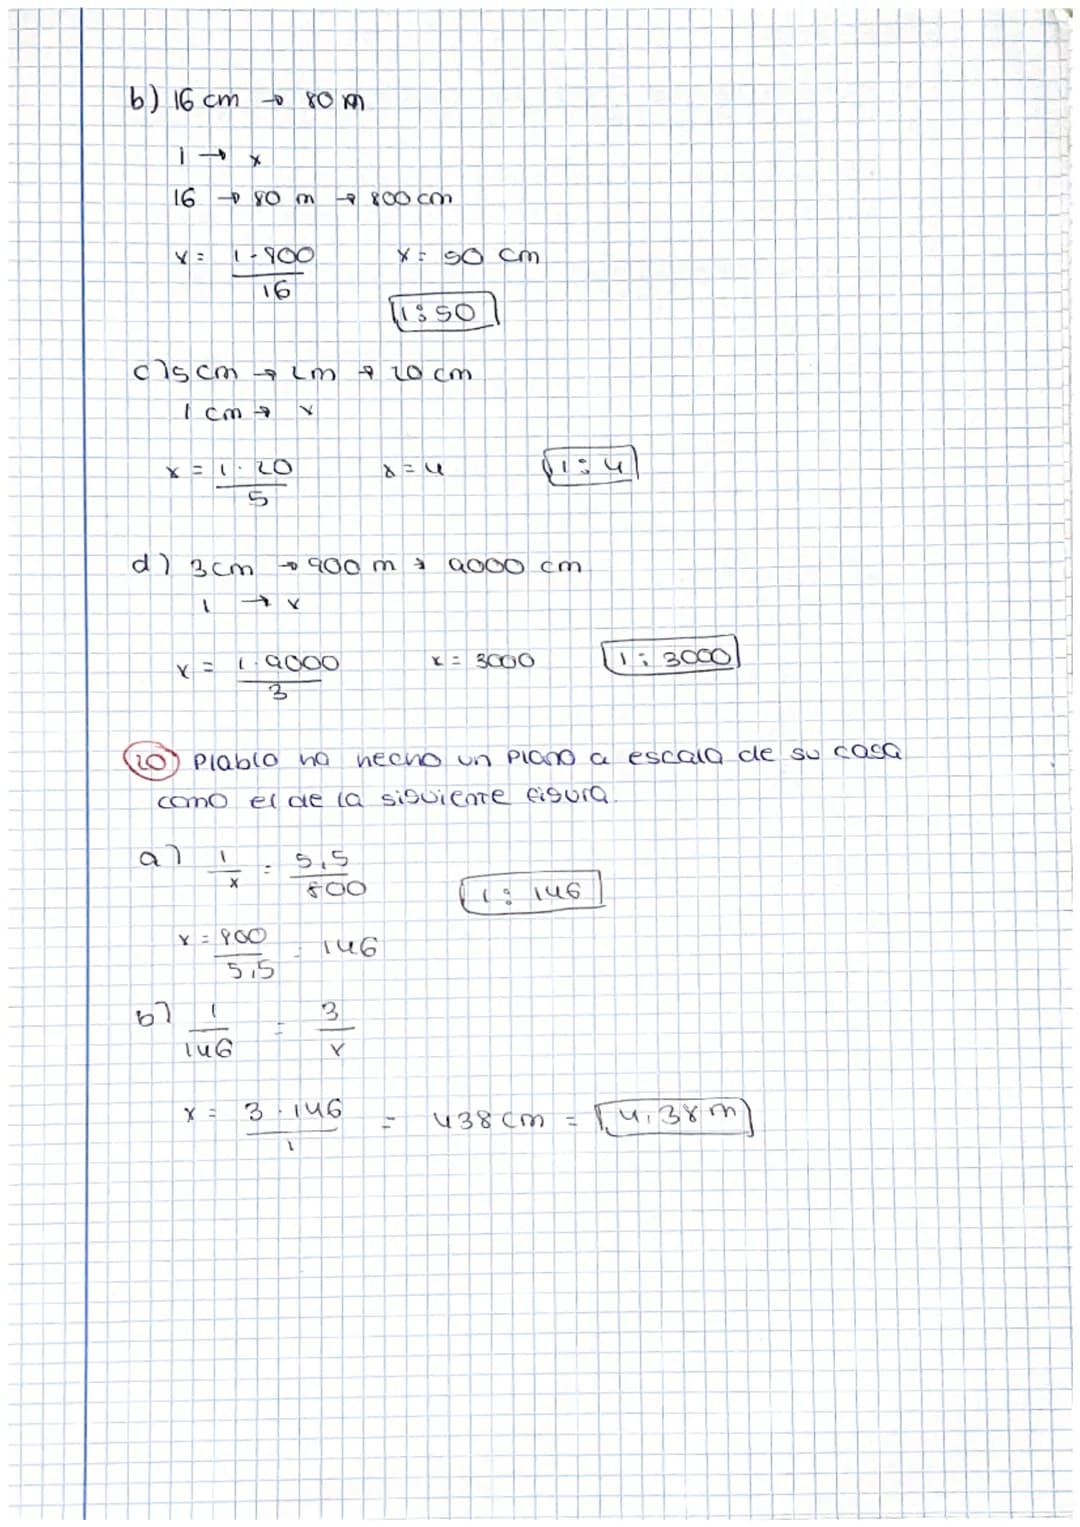 b) 16 cm → 80 m
1 → x
16 → 80 m → 800 cm
x = 1·800 / 16 x = 50 cm
1:50
c) 5 cm → 2m → 20 cm
1 cm → x
x = 1·20 / 5 x = 4 1:4
d) 3cm → 900 m → 9000 cm
1 → x
x = 1·9000 / 3 x = 3000 1:3000
20) Plablo ha hecho un plano a escala de su casa
como el de la siguiente figura.
a) 1/x = 5,5/800
1:146
x = 800/5,5 = 146
b) 1/146 = 3/x
x = 3·146 / 1 = 438 cm = 4,38 m